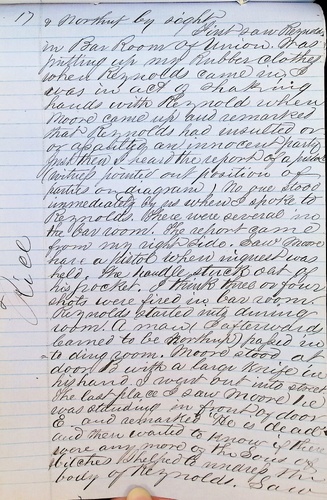 17 & Northup by sight
First saw Reynolds
in Bar Room of Union. Was
putting up my Rubber clothes
when Reynolds came in. I
was in act of shaking
hands with Reynolds when
Moore came up and remarked
that Reynolds had insulted or
assaulted an innocent party
Just then I heard the report of a pistol
(witness pointed out position of
parties on diagram) No one stood
immediately by us when I spoke to
Reynolds. There were several in
the bar room. The report came
from my right side. Saw Moore
have a pistol when inquest was
held. The handle stuck out of
his pocket. I think three or four
shots were fired in bar room
Reynolds started into dining
room. A man (I afterward
learned to be Northup) passed in
to dining room. Moore stood at
door B with a large knife in
his hand. I went out into street
The last place I saw Moore he
was standing in front of door
E and remarked He is dead
and then wanted to know if there
were any more of the sons of
bitches. I helped to undress the
body of Reynolds. Saw